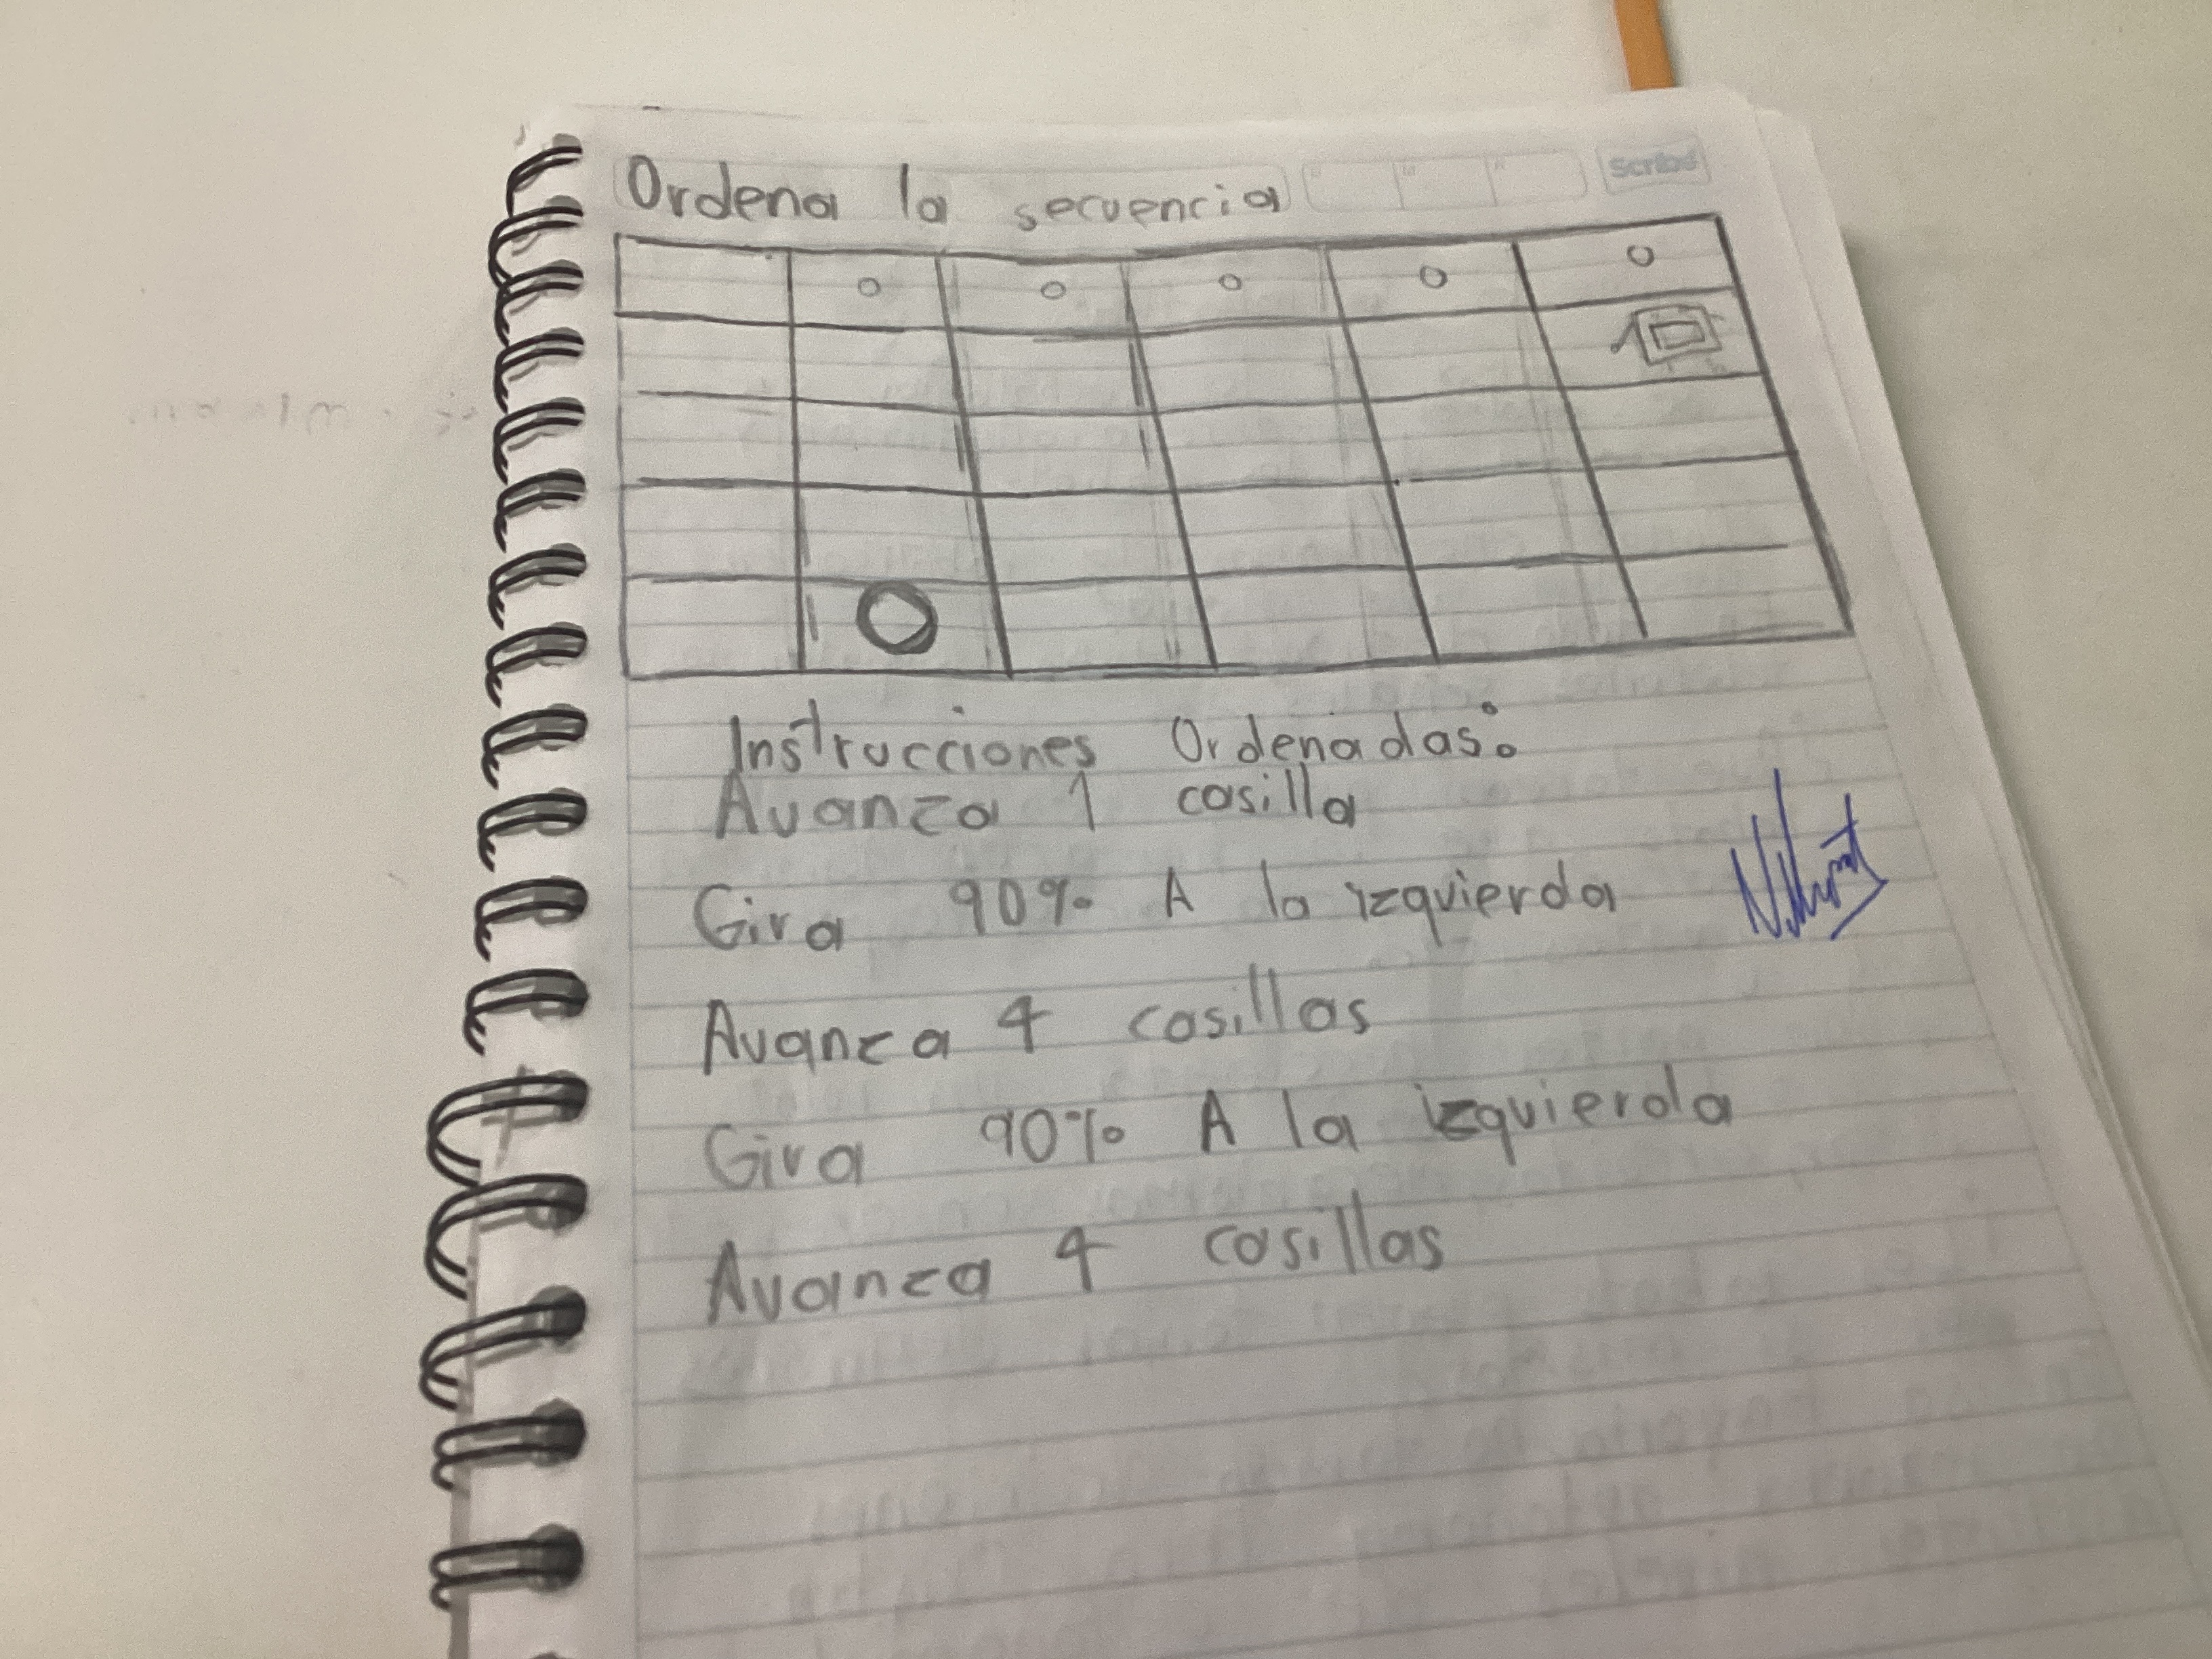 Scribe
Ordena la secuencia
Instrucciones Ordenadas:
Avanza 1 casilla
Gira 90% A la izquierda
Avanza 4 casillas
Gira 90% A la izquierda
Avanza 4 casillas